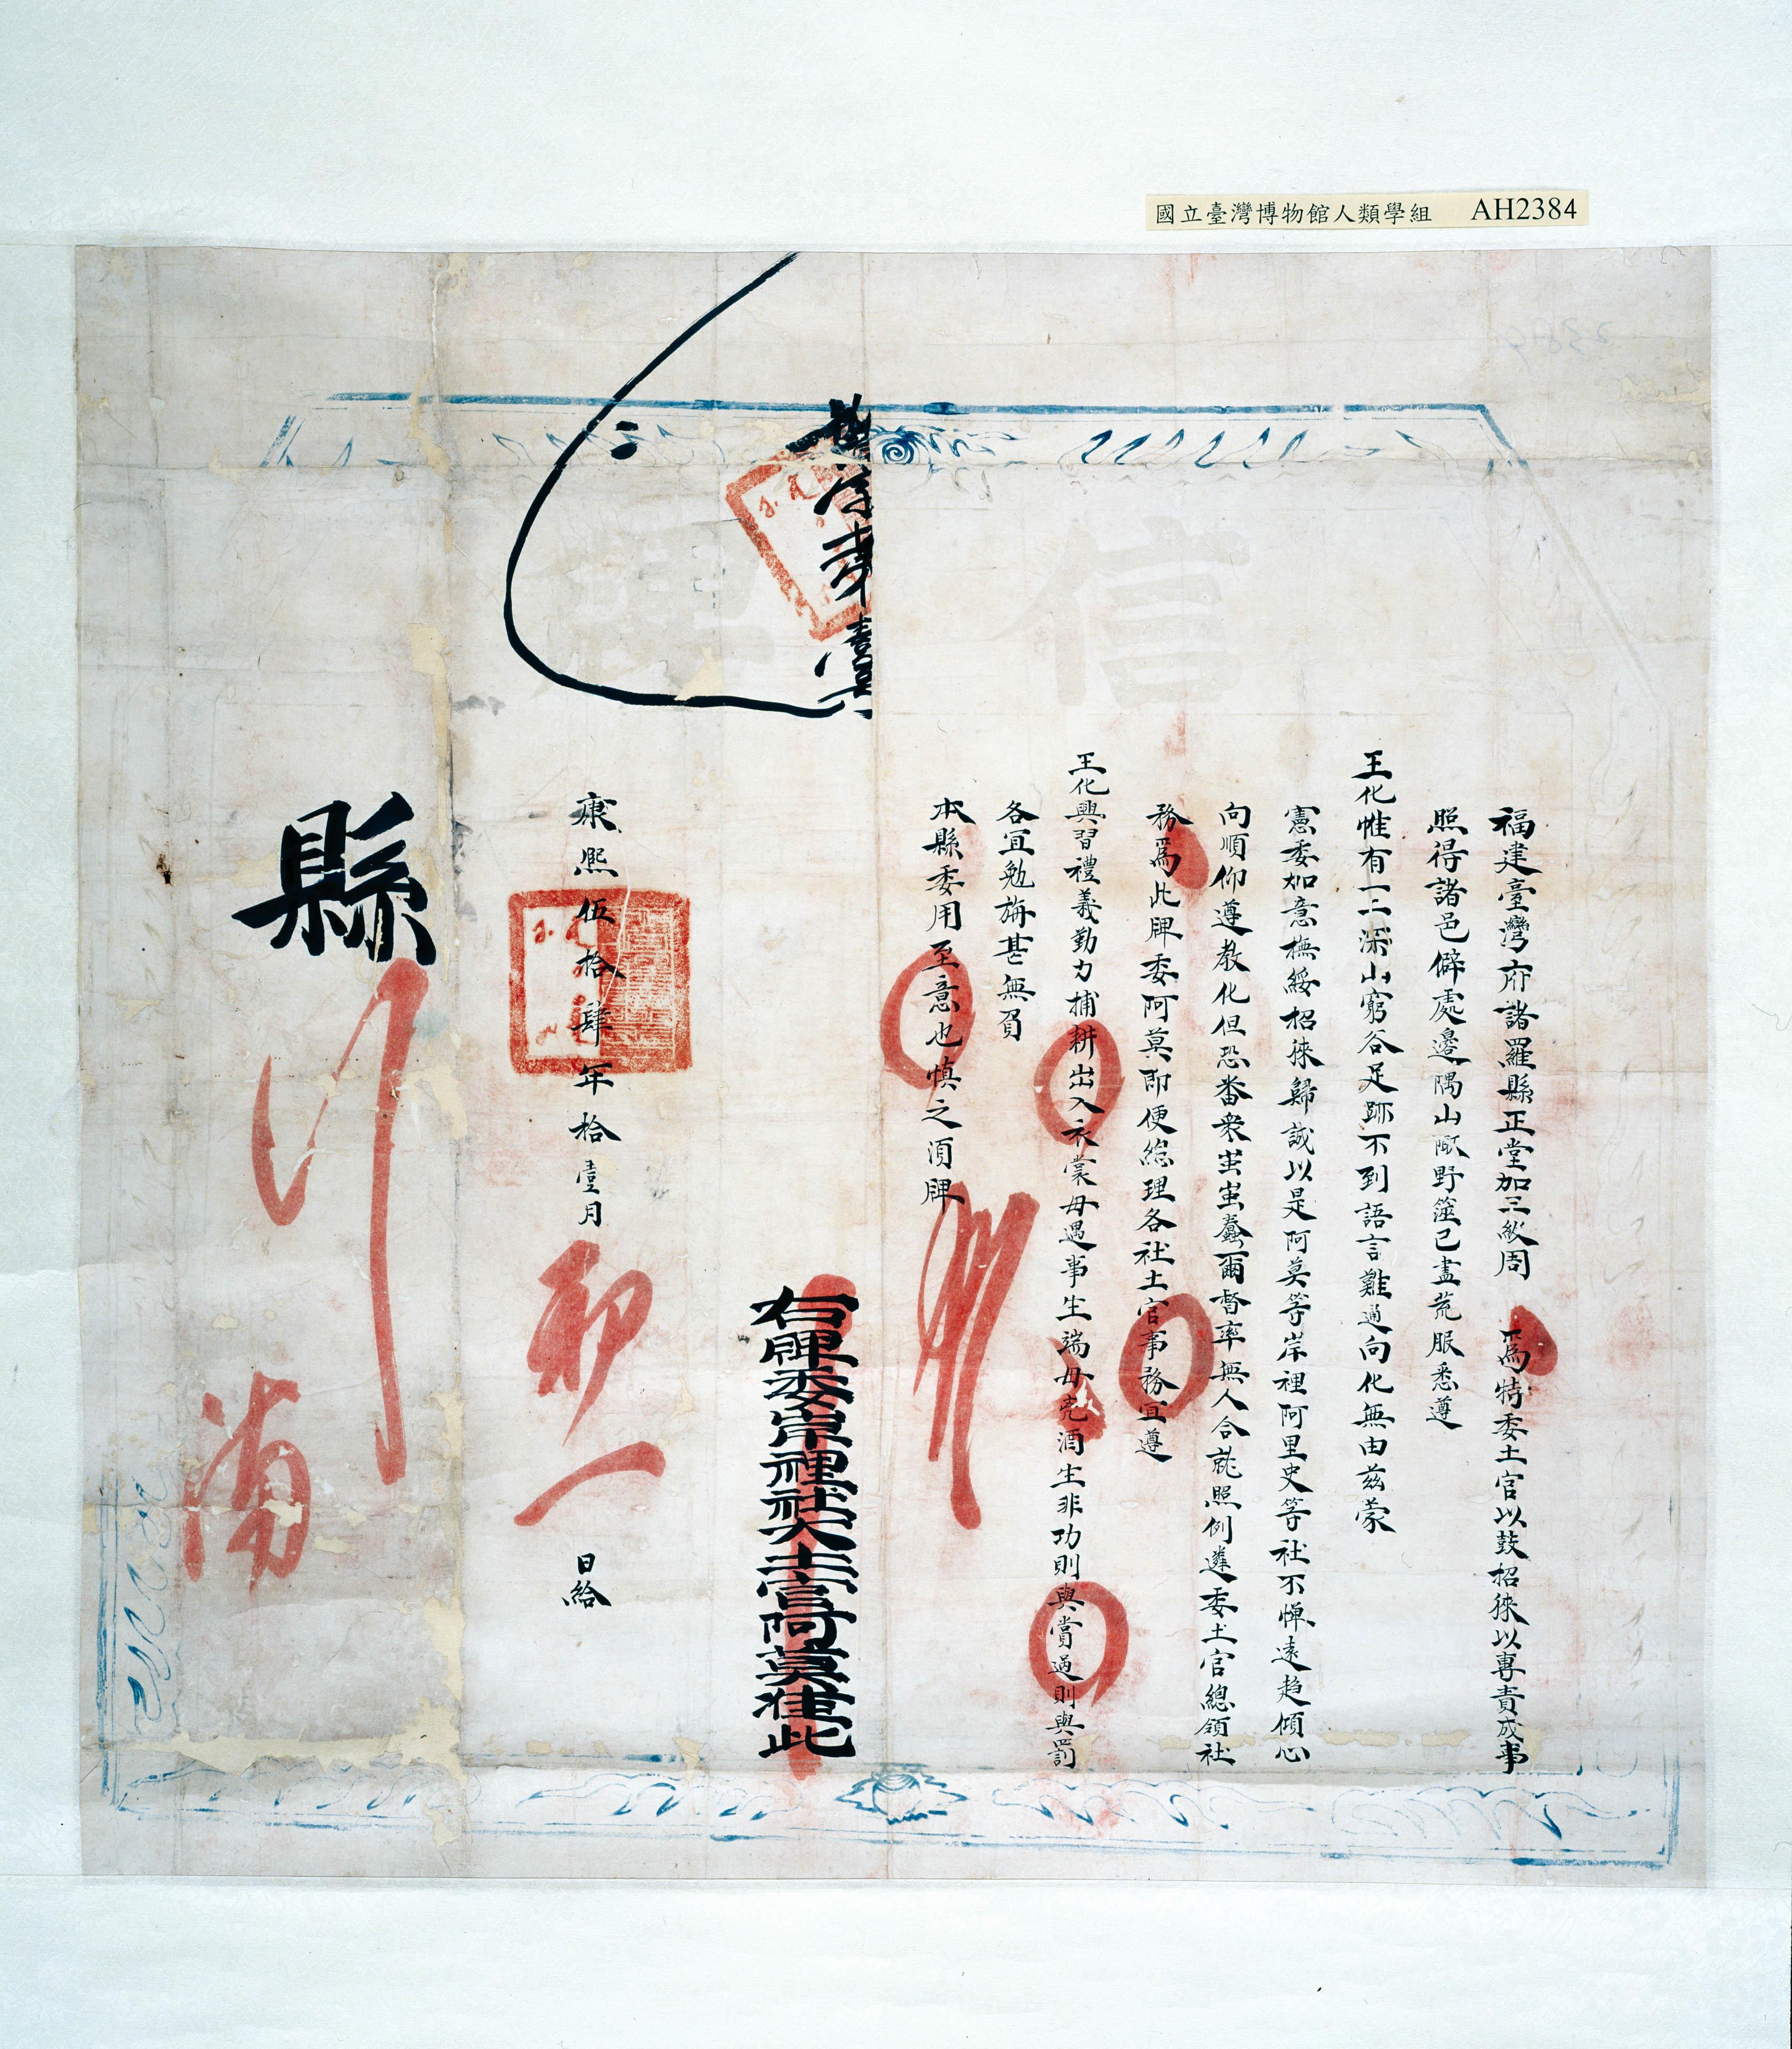 國立臺灣博物館人類學組 AH2384
信牌
福建臺灣府諸羅縣正堂加三級周 爲特委土官以鼓招徠以專責成事
照得諸邑僻處邊隅山陬野箐已盡荒服悉遵
王化惟有一二深山窮谷足跡不到語言難通向化無由茲蒙
憲委加意撫綏招徠歸誠以是阿莫等岸裡阿里史等社不憚遠趋傾心
向順仰遵教化但恐畨衆蚩蚩蠢爾督率無人合就照例遴委土官總領社
務爲此牌委阿莫即便総理各社土官事務宜遵
王化興習禮義勤力捕耕出入衣裳毋遇事生端毋兇酒生非功則與賞過則與罰
各宜勉旃甚無負
本縣委用至意也慎之湏牌
右牌委岸裡社大土官阿莫准此
康熙伍拾肆年拾壹月 初一 日給
縣
行